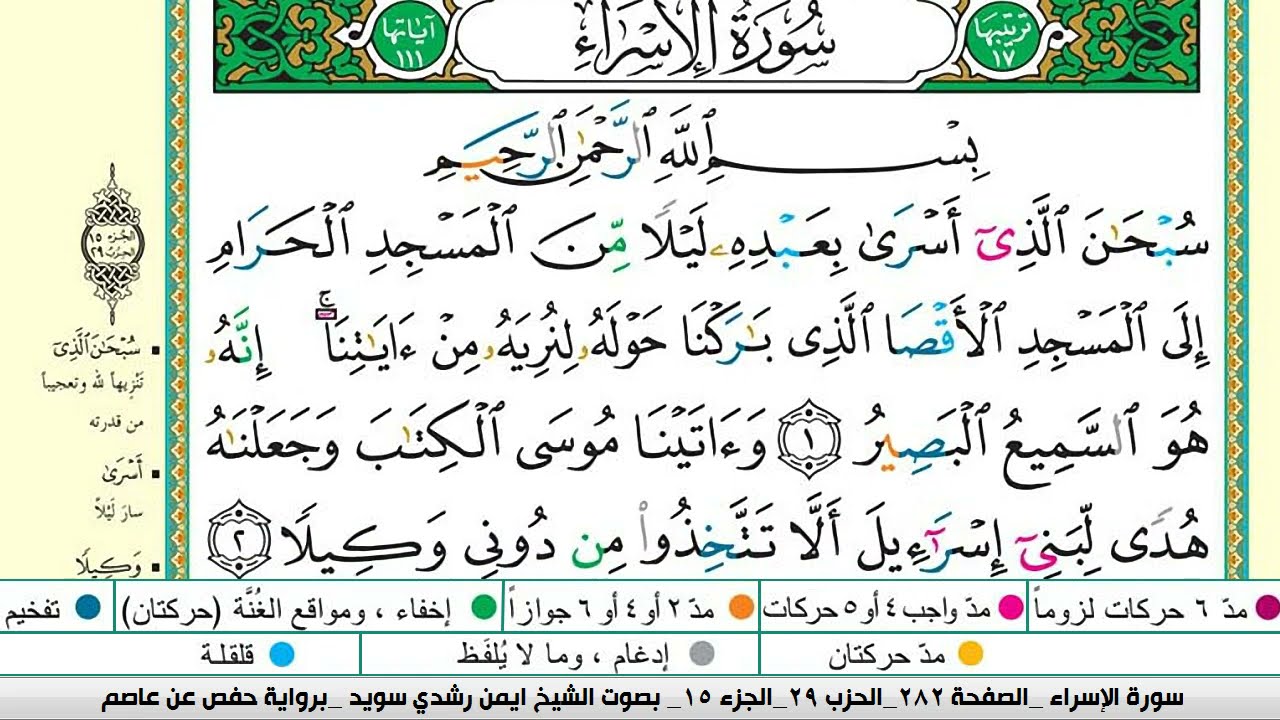 ترتيبها ١٧
سُورَةُ الإِسْرَاءِ
آياتها ١١١
بِسْمِ ٱللَّهِ ٱلرَّحْمَٰنِ ٱلرَّحِيمِ
سُبْحَٰنَ ٱلَّذِىٓ أَسْرَىٰ بِعَبْدِهِۦ لَيْلًا مِّنَ ٱلْمَسْجِدِ ٱلْحَرَامِ
إِلَى ٱلْمَسْجِدِ ٱلْأَقْصَا ٱلَّذِى بَٰرَكْنَا حَوْلَهُۥ لِنُرِيَهُۥ مِنْ ءَايَٰتِنَآ ۚ إِنَّهُۥ
هُوَ ٱلسَّمِيعُ ٱلْبَصِيرُ ١ وَءَاتَيْنَا مُوسَى ٱلْكِتَٰبَ وَجَعَلْنَٰهُ
هُدًى لِّبَنِىٓ إِسْرَٰٓءِيلَ أَلَّا تَتَّخِذُوا۟ مِن دُونِى وَكِيلًا ٢
الجزء ١٥
الحزب ٢٩
سُبْحَٰنَ ٱلَّذِىٓ
تَنْزِيهاً لله وتعجيباً
من قدرته
أَسْرَىٰ
سارَ لَيْلاً
وَكِيلًا
مدّ ٦ حركات لزوماً
مدّ واجب ٤ أو ٥ حركات
مدّ ٢ أو ٤ أو ٦ جوازاً
إخفاء ، ومواقع الغُنَّة (حركتان)
تفخيم
مدّ حركتان
إدغام ، وما لا يُلفَظ
قلقلة
سورة الإسراء _الصفحة ٢٨٢_الحزب ٢٩_الجزء ١٥_ بصوت الشيخ ايمن رشدي سويد _برواية حفص عن عاصم